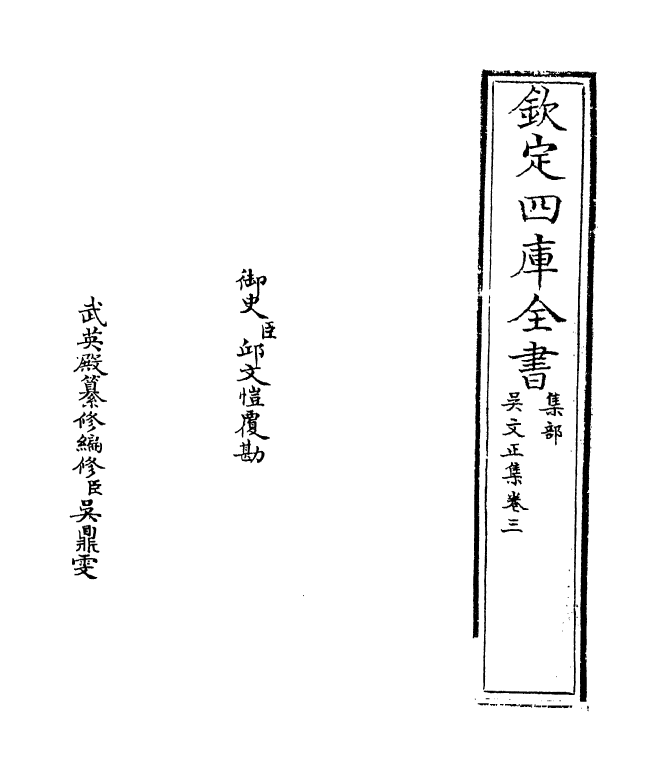 欽定四庫全書
集部
吳文正集卷三
御史臣邱文愷覆勘
武英殿纂修編修臣吳鼎雯